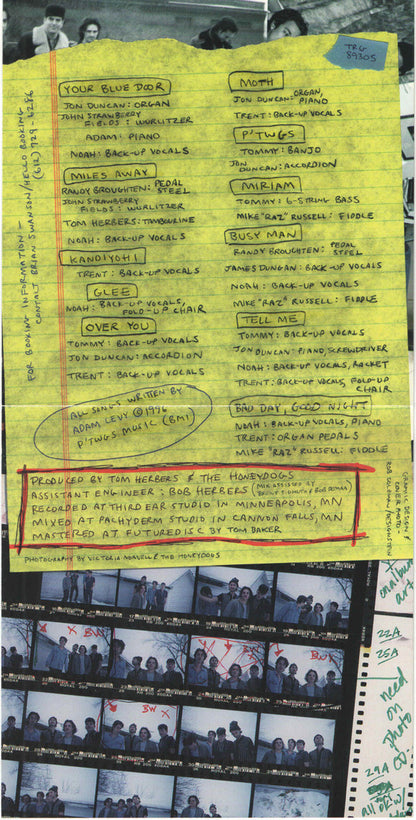 TRG
89305
FOR BOOKING INFORMATION –
CONTACT BRIAN SWANSON/HELLO BOOKING
YOUR BLUE DOOR
JON DUNCAN: ORGAN
JOHN STRAWBERRY
FIELDS: WURLITZER
ADAM: PIANO
NOAH: BACK-UP VOCALS
MILES AWAY
RANDY BROUGHTEN: PEDAL
STEEL
JOHN STRAWBERRY
FIELDS: WURLITZER
TOM HERBERS: TAMBOURINE
NOAH: BACK-UP VOCALS
KANDIYOHI
TRENT: BACK-UP VOCALS
GLEE
NOAH: BACK-UP VOCALS,
FOLD-UP CHAIR
OVER YOU
TOMMY: BACK-UP VOCALS
JON DUNCAN: ACCORDION
TRENT: BACK-UP VOCALS
ALL SONGS WRITTEN BY
ADAM LEVY ©1996
P'TWGS MUSIC (BMI)
MOTH
JON DUNCAN: ORGAN,
PIANO
TRENT: BACK-UP VOCALS
P'TWGS
TOMMY: BANJO
JON
DUNCAN: ACCORDION
MIRIAM
TOMMY: 6-STRING BASS
MIKE "RAZ" RUSSELL: FIDDLE
BUSY MAN
RANDY BROUGHTEN: PEDAL
STEEL
JAMES DUNCAN: BACK-UP VOCALS
NOAH: BACK-UP VOCALS
MIKE "RAZ" RUSSELL: FIDDLE
TELL ME
TOMMY: BACK-UP VOCALS
JON DUNCAN: PIANO, SCREWDRIVER
NOAH: BACK-UP VOCALS, RACKET
TRENT: BACK-UP VOCALS, FOLD-UP
CHAIR
BAD DAY, GOOD NIGHT
NOAH: BACK-UP VOCALS, PIANO
TRENT: ORGAN PEDALS
MIKE "RAZ" RUSSELL: FIDDLE
PRODUCED BY TOM HERBERS & THE HONEYDOGS
ASSISTANT ENGINEER: BOB HERBERS (MIX ASSISTED BY
RECORDED AT THIRD EAR STUDIO IN MINNEAPOLIS, MN
MIXED AT PACHYDERM STUDIO IN CANNON FALLS, MN
MASTERED AT FUTUREDISC BY TOM BAKER
GRAPHIC DESIGN &
COVER PHOTO –
PHOTOGRAPHY BY VICTORIA & THE HONEYDOGS
BW
BW
BW
art
22A
25A
need
on
photo
29A